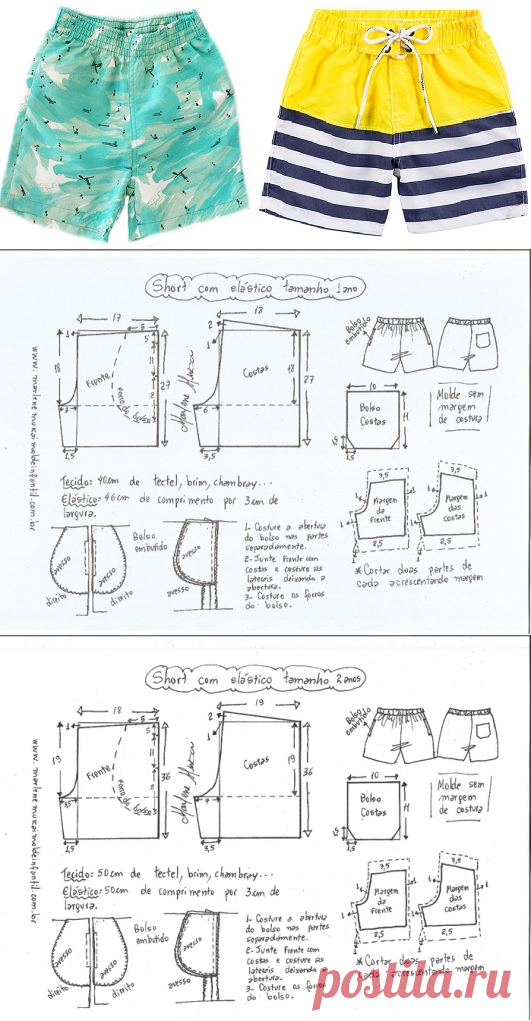 Short com elástico tamanho 1 ano
17
5
1
5
18
11
27
3
Frente
Forro do bolso
1,5
www.marlenemukaimoldeinfantil.com.br
Marlene Mukai
18
2
1
Costas
18
27
6
3,5
Bolso embutido
10
Bolso Costas
11
1,5
1,5
Molde sem
margem
de costura
Tecido: 40cm de tectel, brim, chambray...
Elástico: 46cm de comprimento por 3cm de
largura.
Bolso
embutido
avesso
direito
avesso
direito
avesso
1- Costure a abertura
do bolso nas partes
separadamente.
2- Junte Frente com
costas e costure as
laterais deixando a
abertura.
3- Costure os forros
do bolso.
3,5
Margem
da
Frente
2,5
3,5
Margem
das
costas
2,5
* Cortar duas partes de
cada acrescentando margem
Short com elástico tamanho 2 anos
18
5
1
5
19
11
36
3,5
Frente
Forro do bolso
1,5
www.marlenemukaimoldeinfantil.com.br
Marlene Mukai
19
2
1
Costas
19
36
7
3,5
Bolso embutido
10
Bolso
Costas
11
1,5
1,5
Molde sem
margem
de costura
Tecido: 50cm de tectel, brim, chambray...
Elástico: 50cm de comprimento por 3cm de
largura.
Bolso
embutido
avesso
direito
avesso
direito
avesso
1- Costure a abertura
do bolso nas partes
separadamente.
2- Junte Frente com
costas e costure as
laterais deixando a
abertura.
3- Costure os forros
do bolso.
3,5
Margem
da
Frente
2,5
3,5
Margem
das
costas
2,5
* Cortar duas partes de
cada acrescentando margem
postila.ru